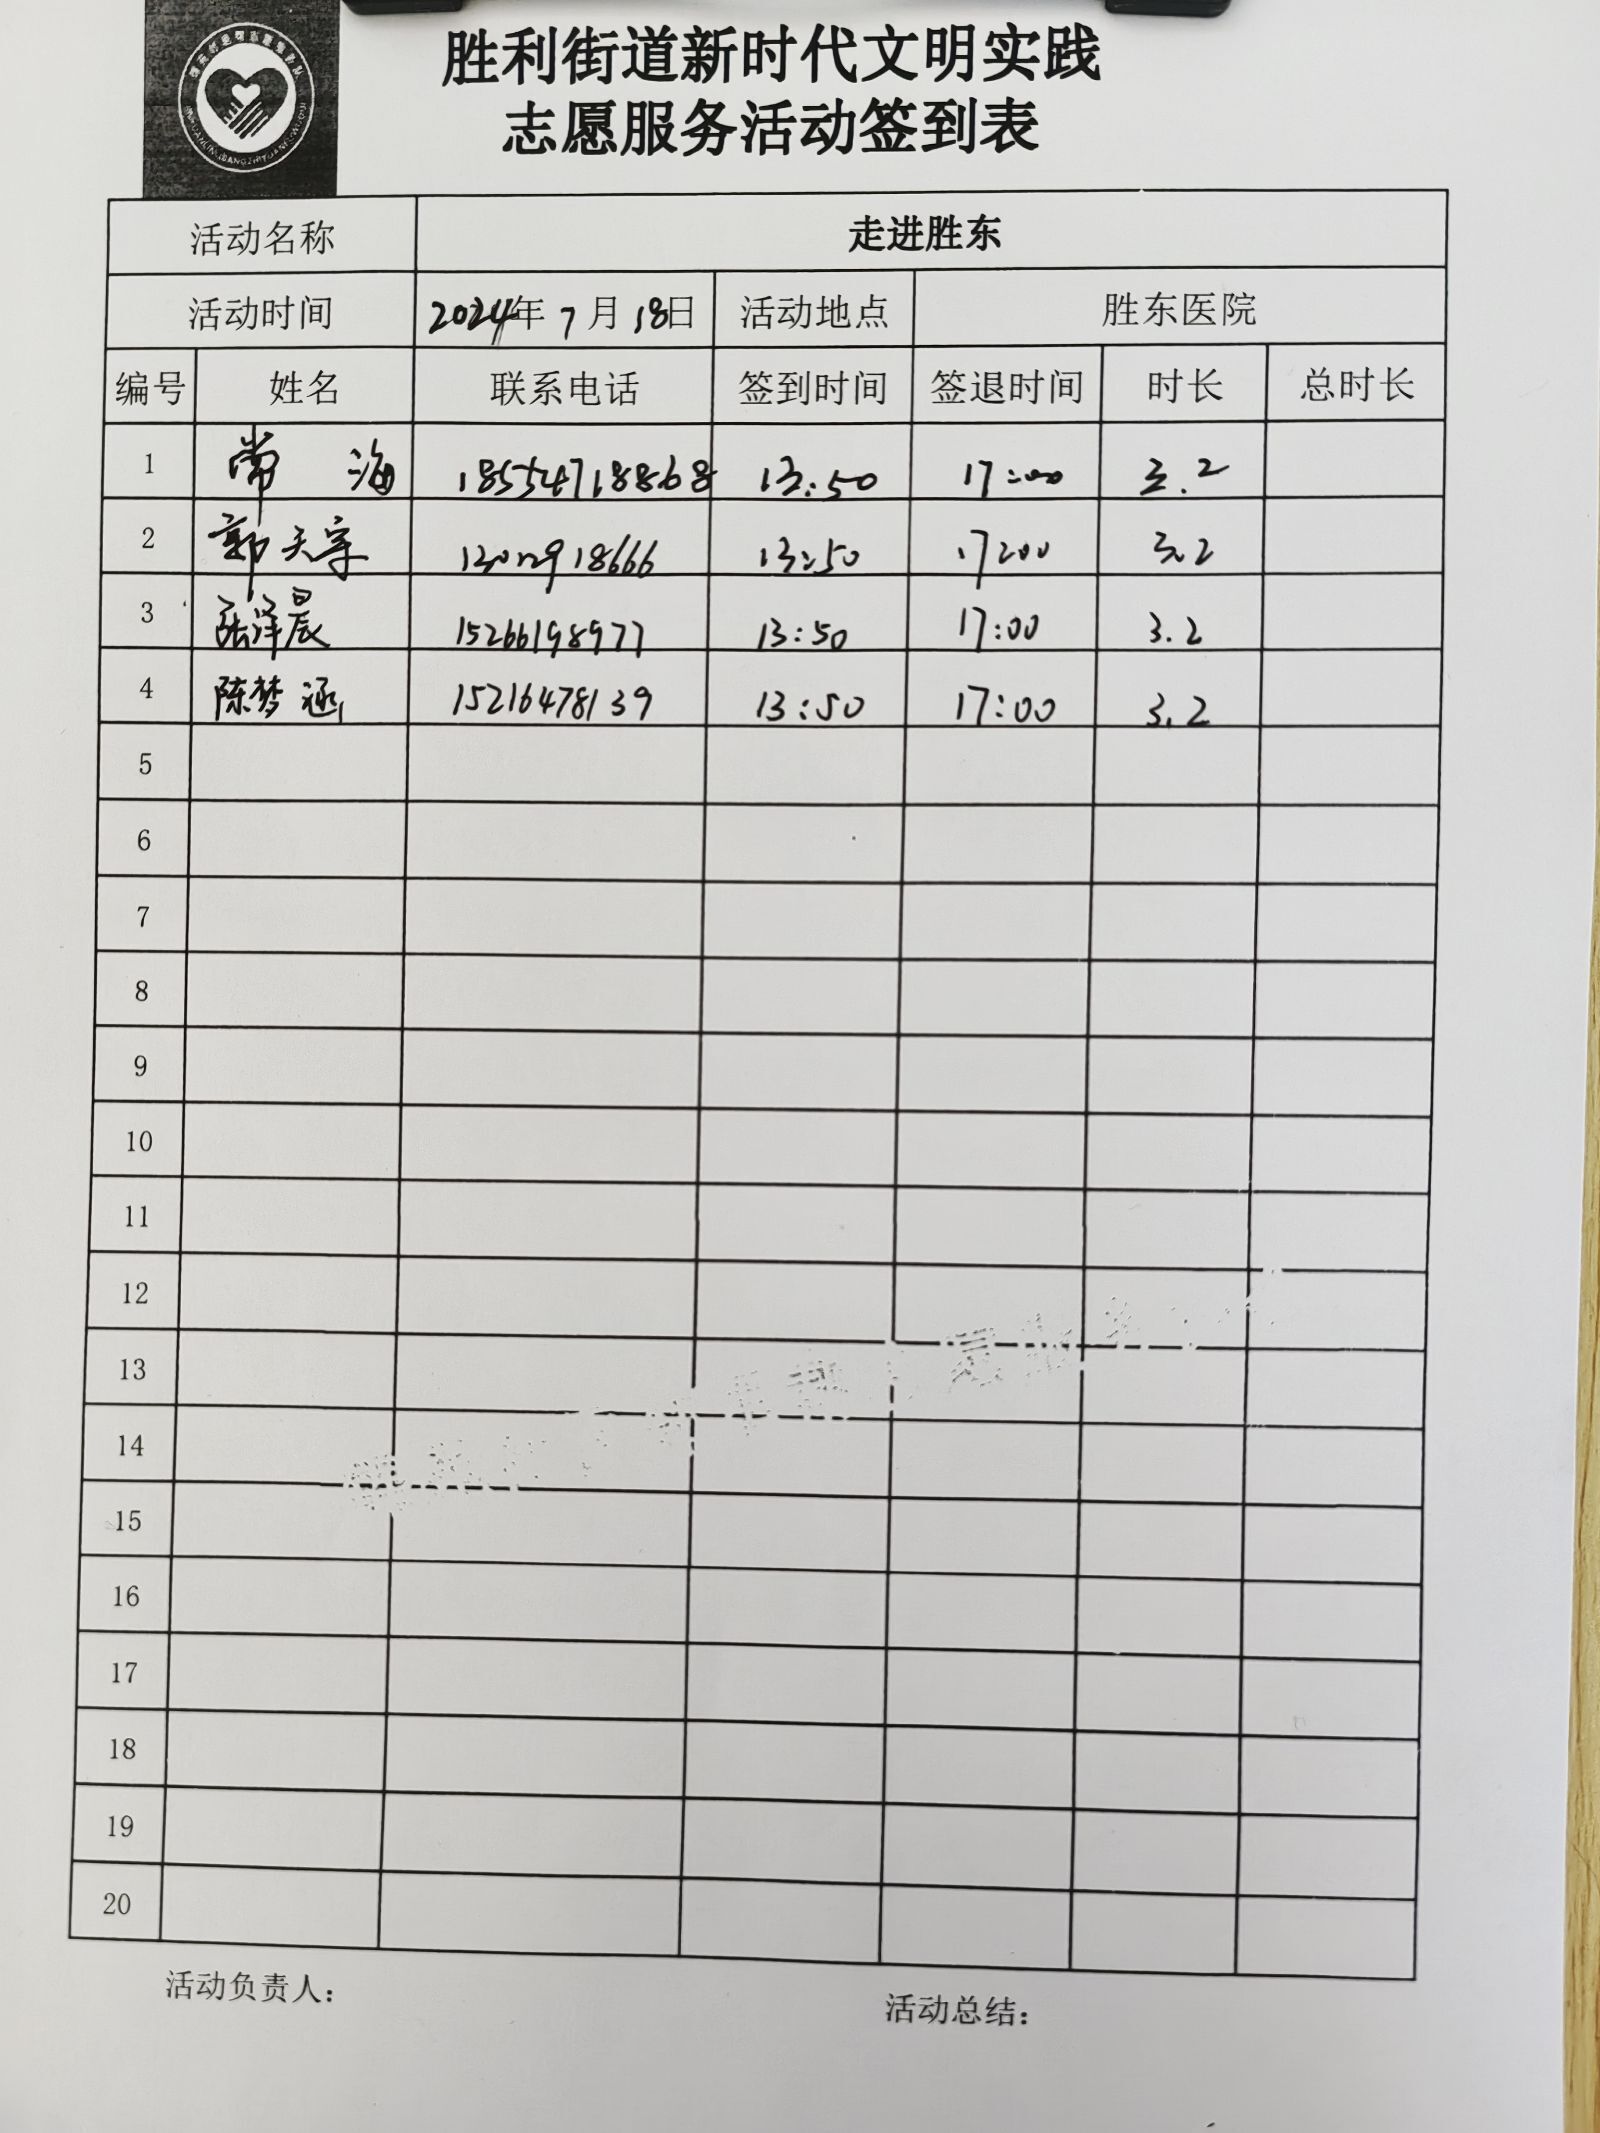 胜利街道新时代文明实践
志愿服务活动签到表
活动名称 走进胜东
活动时间 2024年7月18日 活动地点 胜东医院
编号 姓名 联系电话 签到时间 签退时间 时长 总时长
1 常海 18554718868 13:50 17:00 3.2
2 郭天宇 18666 13:50 17:00 3.2
3 张泽晨 15266198977 13:50 17:00 3.2
4 陈梦涵 15216478139 13:50 17:00 3.2
5
6
7
8
9
10
11
12
13
14
15
16
17
18
19
20
活动负责人: 活动总结: